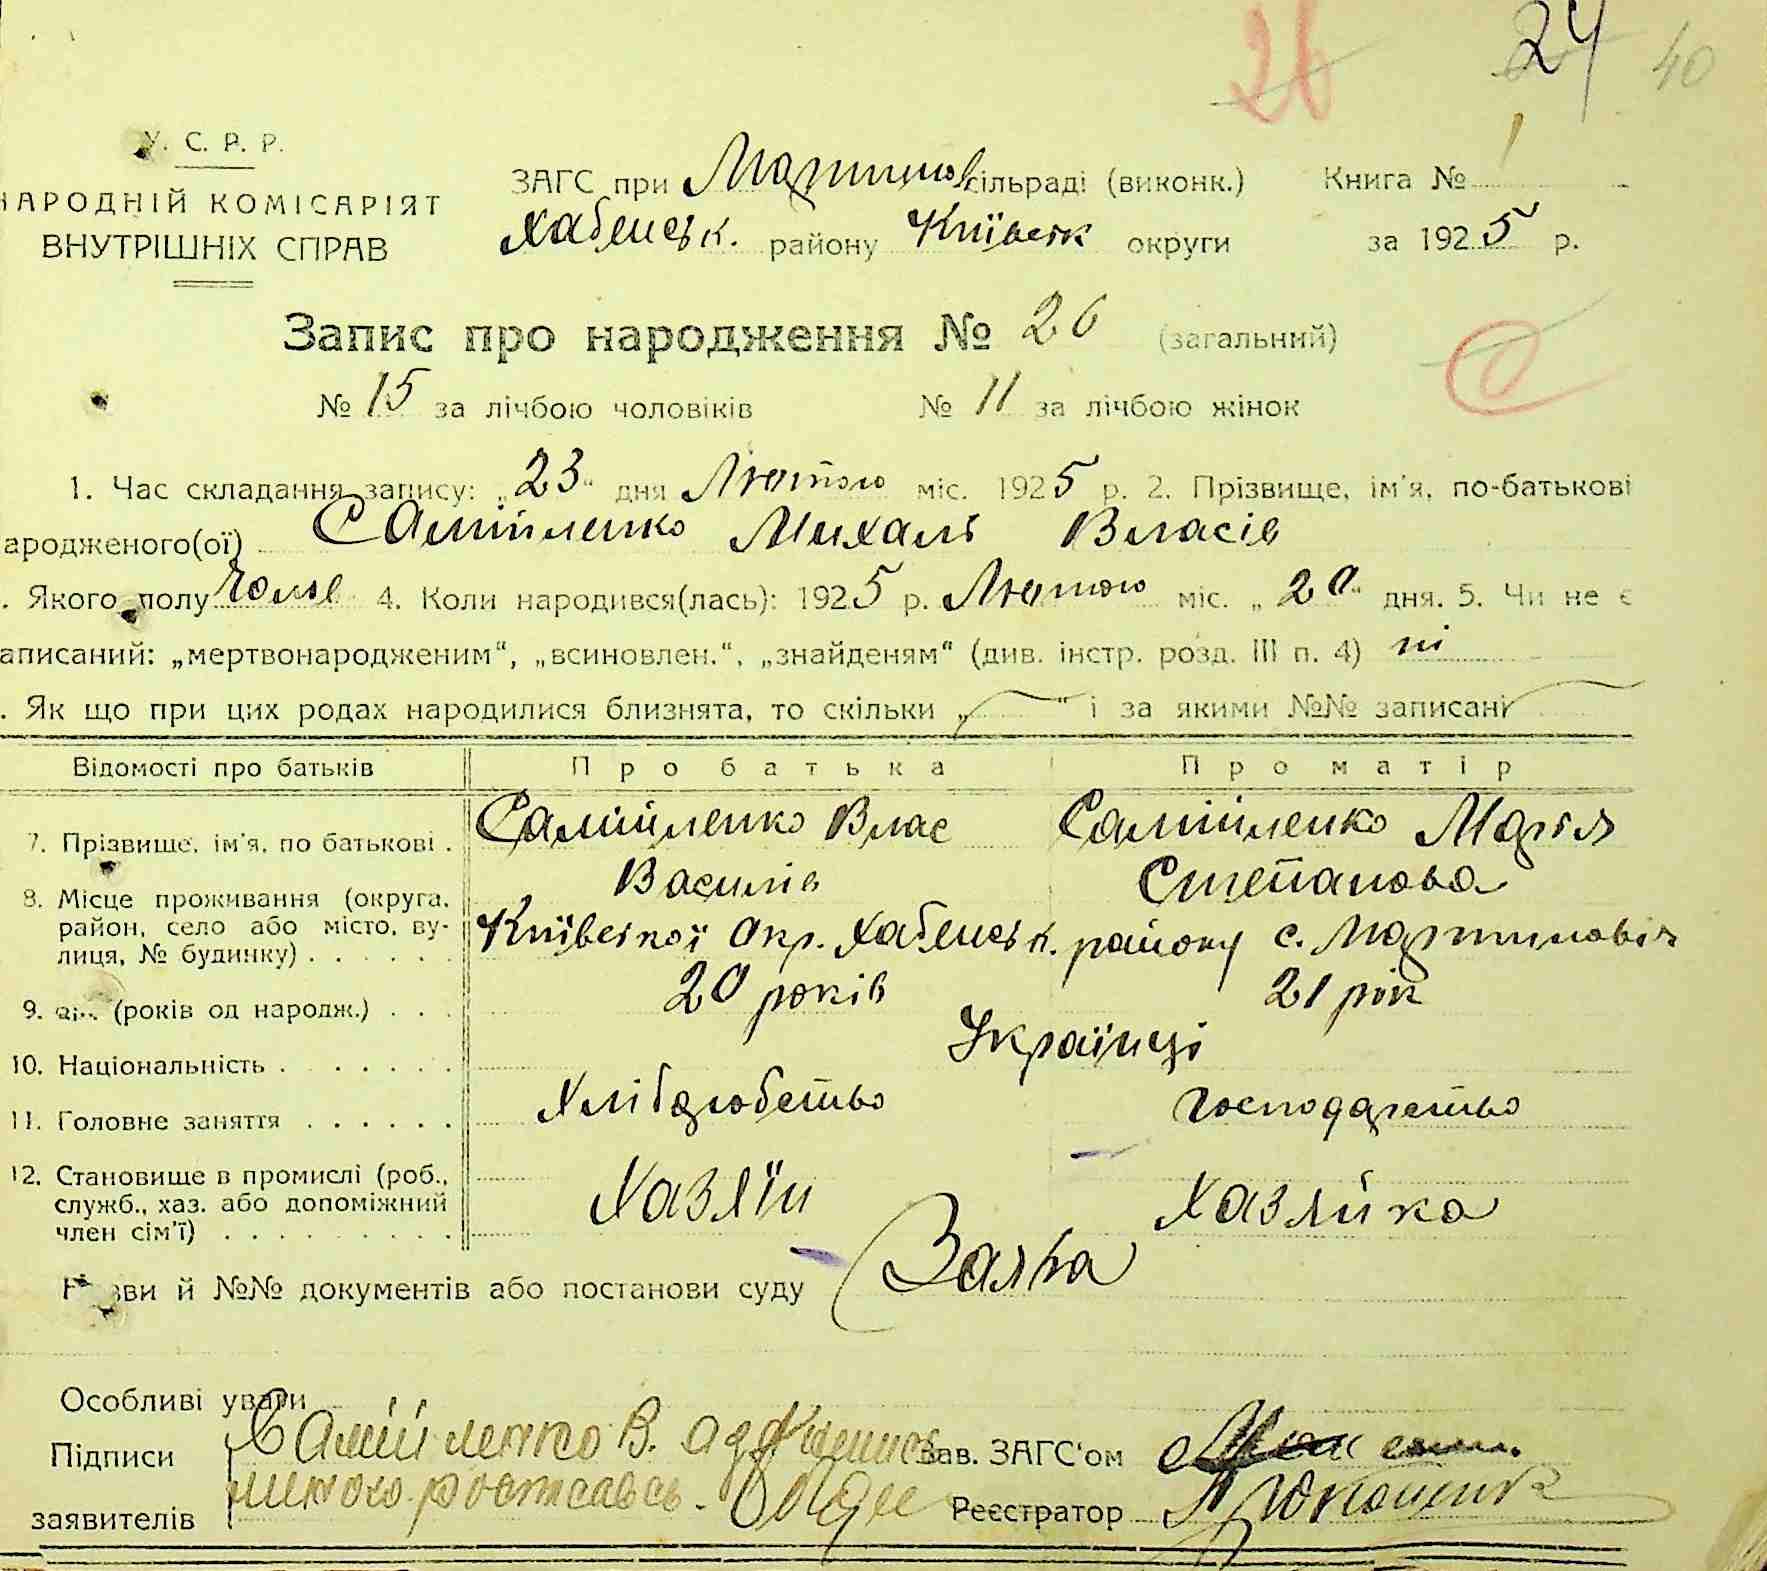 26 24 40
У. С. Р. Р.
НАРОДНІЙ КОМІСАРІЯТ
ВНУТРІШНІХ СПРАВ
ЗАГС при Мартинов сільраді (виконк.) Книга № 1
Хабенськ. району Київськ округи за 1925 р.
Запис про народження № 26 (загальний)
№ 15 за лічбою чоловіків № 11 за лічбою жінок
1. Час складання запису: „23" дня Лютого міс. 1925 р. 2. Прізвище, ім'я, по-батькові
ародженого(ої) Самійленко Михаль Власів
. Якого полу Чолов 4. Коли народився(лась): 1925 р. Лютого міс. „20" дня. 5. Чи не є
аписаний: „мертвонародженим", „всиновлен.", „знайденям" (див. інстр. розд. III п. 4) ні
. Як що при цих родах народилися близнята, то скільки „ " і за якими №№ записані
Відомості про батьків Про батька Про матір
7. Прізвище, ім'я, по батькові . Самійленко Влас Василів Самійленко Марія Степанова
8. Місце проживання (округа, район, село або місто, вулиця, № будинку) . . . . . . Київської Окр. Хабенськ. району с. Мартиновіч
9. (років од народж.) . . . 20 років 21 рік
10. Національність . . . . . . . Українці
11. Головне заняття . . . . . . Хліборобство Господарство
12. Становище в промислі (роб., служб., хаз. або допоміжний член сім'ї) . . . . . . . . . Хазяїн Хазяйка
зви й №№ документів або постанови суду Заява
Особливі уваги
Підписи заявителів Самійленко В.
Зав. ЗАГС'ом
Реєстратор